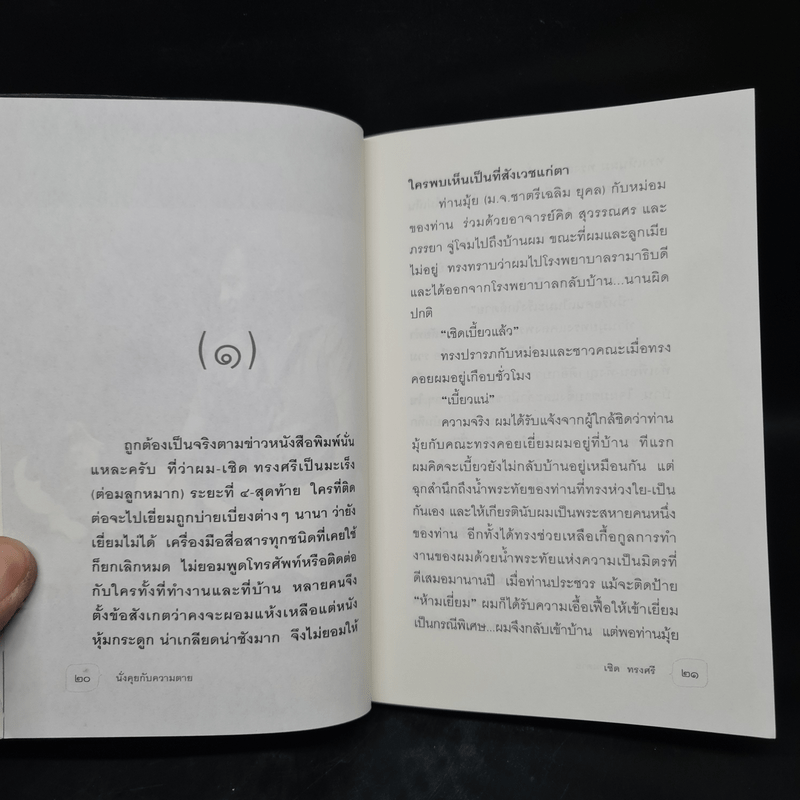 (๑)
ถูกต้องเป็นจริงตามข่าวหนังสือพิมพ์นั่น
แหละครับ ที่ว่าผม-เชิด ทรงศรีเป็นมะเร็ง
(ต่อมลูกหมาก) ระยะที่ ๔-สุดท้าย ใครที่ติด
ต่อจะไปเยี่ยมถูกบ่ายเบี่ยงต่างๆ นานา ว่ายัง
เยี่ยมไม่ได้ เครื่องมือสื่อสารทุกชนิดที่เคยใช้
ก็ยกเลิกหมด ไม่ยอมพูดโทรศัพท์หรือติดต่อ
กับใครทั้งที่ทำงานและที่บ้าน หลายคนจึง
ตั้งข้อสังเกตว่าคงจะผอมแห้งเหลือแต่หนัง
หุ้มกระดูก น่าเกลียดน่าชังมาก จึงไม่ยอมให้
๒๐ นั่งคุยกับความตาย
ใครพบเห็นเป็นที่สังเวชแก่ตา
ท่านมุ้ย (ม.จ.ชาตรีเฉลิม ยุคล) กับหม่อม
ของท่าน ร่วมด้วยอาจารย์คิด สุวรรณศร และ
ภรรยา จู่โจมไปถึงบ้านผม ขณะที่ผมและลูกเมีย
ไม่อยู่ ทรงทราบว่าผมไปโรงพยาบาลรามาธิบดี
และได้ออกจากโรงพยาบาลกลับบ้าน...นานผิด
ปกติ
“เชิดเบี้ยวแล้ว”
ทรงปรารภกับหม่อมและชาวคณะเมื่อทรง
คอยผมอยู่เกือบชั่วโมง
“เบี้ยวแน่”
ความจริง ผมได้รับแจ้งจากผู้ใกล้ชิดว่าท่าน
มุ้ยกับคณะทรงคอยเยี่ยมผมอยู่ที่บ้าน ทีแรก
ผมคิดจะเบี้ยวยังไม่กลับบ้านอยู่เหมือนกัน แต่
ฉุกสำนึกถึงน้ำพระทัยของท่านที่ทรงห่วงใย-เป็น
กันเอง และให้เกียรตินับผมเป็นพระสหายคนหนึ่ง
ของท่าน อีกทั้งได้ทรงช่วยเหลือเกื้อกูลการทำ
งานของผมด้วยน้ำพระทัยแห่งความเป็นมิตรที่
ดีเสมอมานานปี เมื่อท่านประชวร แม้จะติดป้าย
“ห้ามเยี่ยม” ผมก็ได้รับความเอื้อเฟื้อให้เข้าเยี่ยม
เป็นกรณีพิเศษ...ผมจึงกลับเข้าบ้าน แต่พอท่านมุ้ย
เชิด ทรงศรี ๒๑